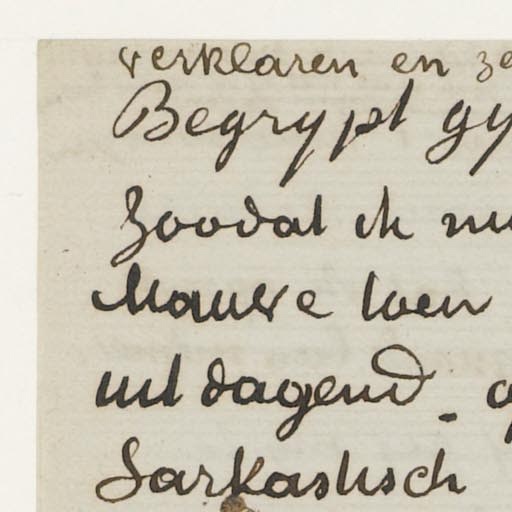 verklaren en
Begrypt gy
Zoodat ik
Mauve toen
uitdagend -
Sarkastisch